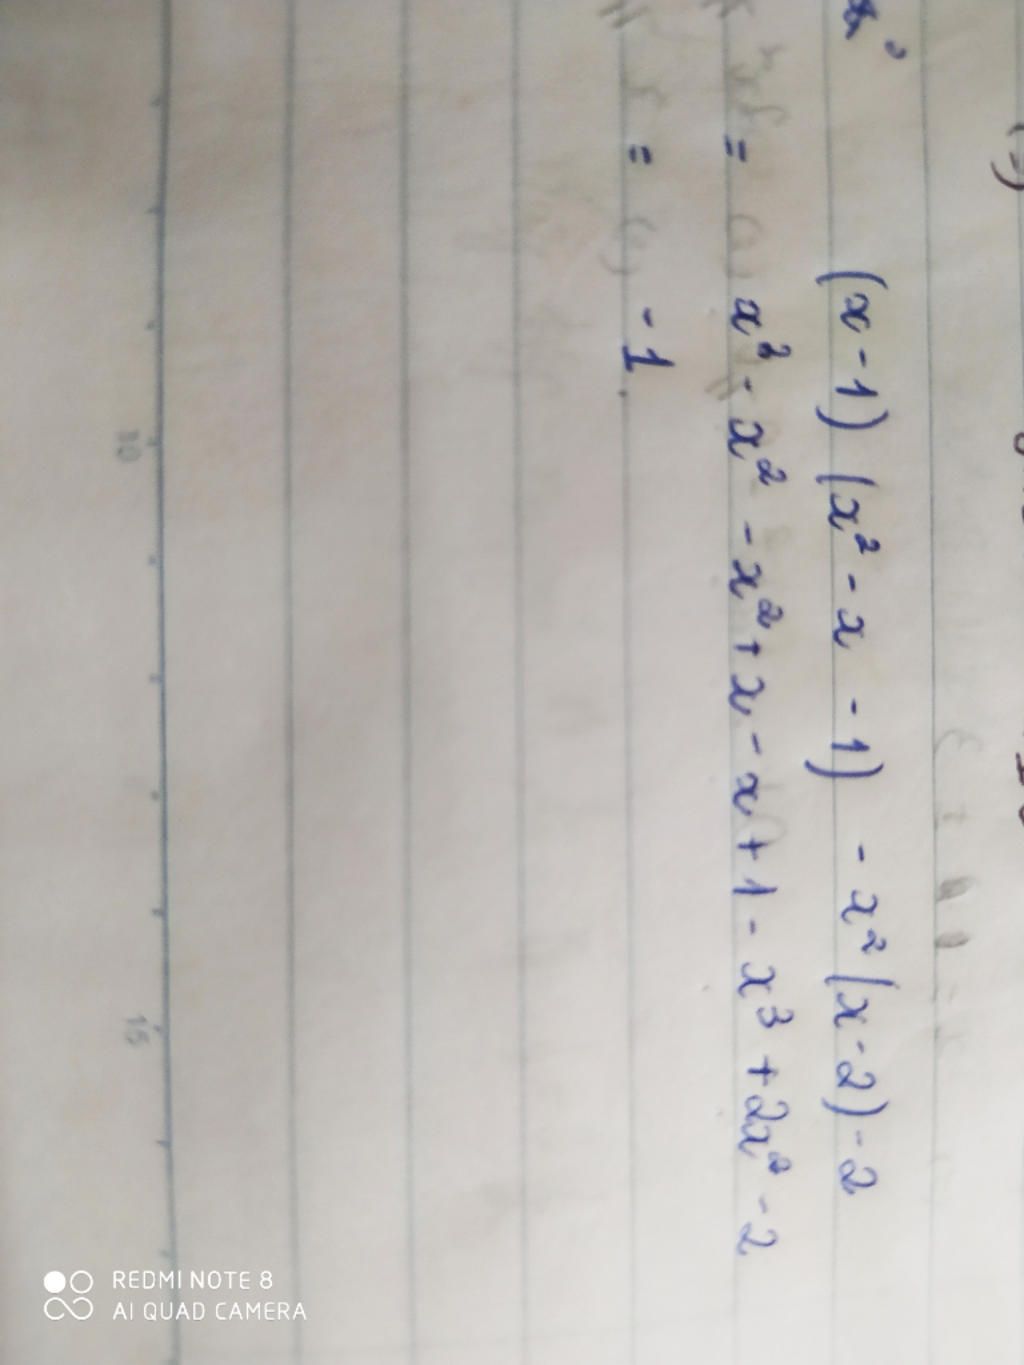 (x-1) (x² - x - 1) - x² (x-2) - 2
= x³ - x² - x² + x - x + 1 - x³ + 2x² - 2
= -1.
10
15
REDMI NOTE 8
AI QUAD CAMERA